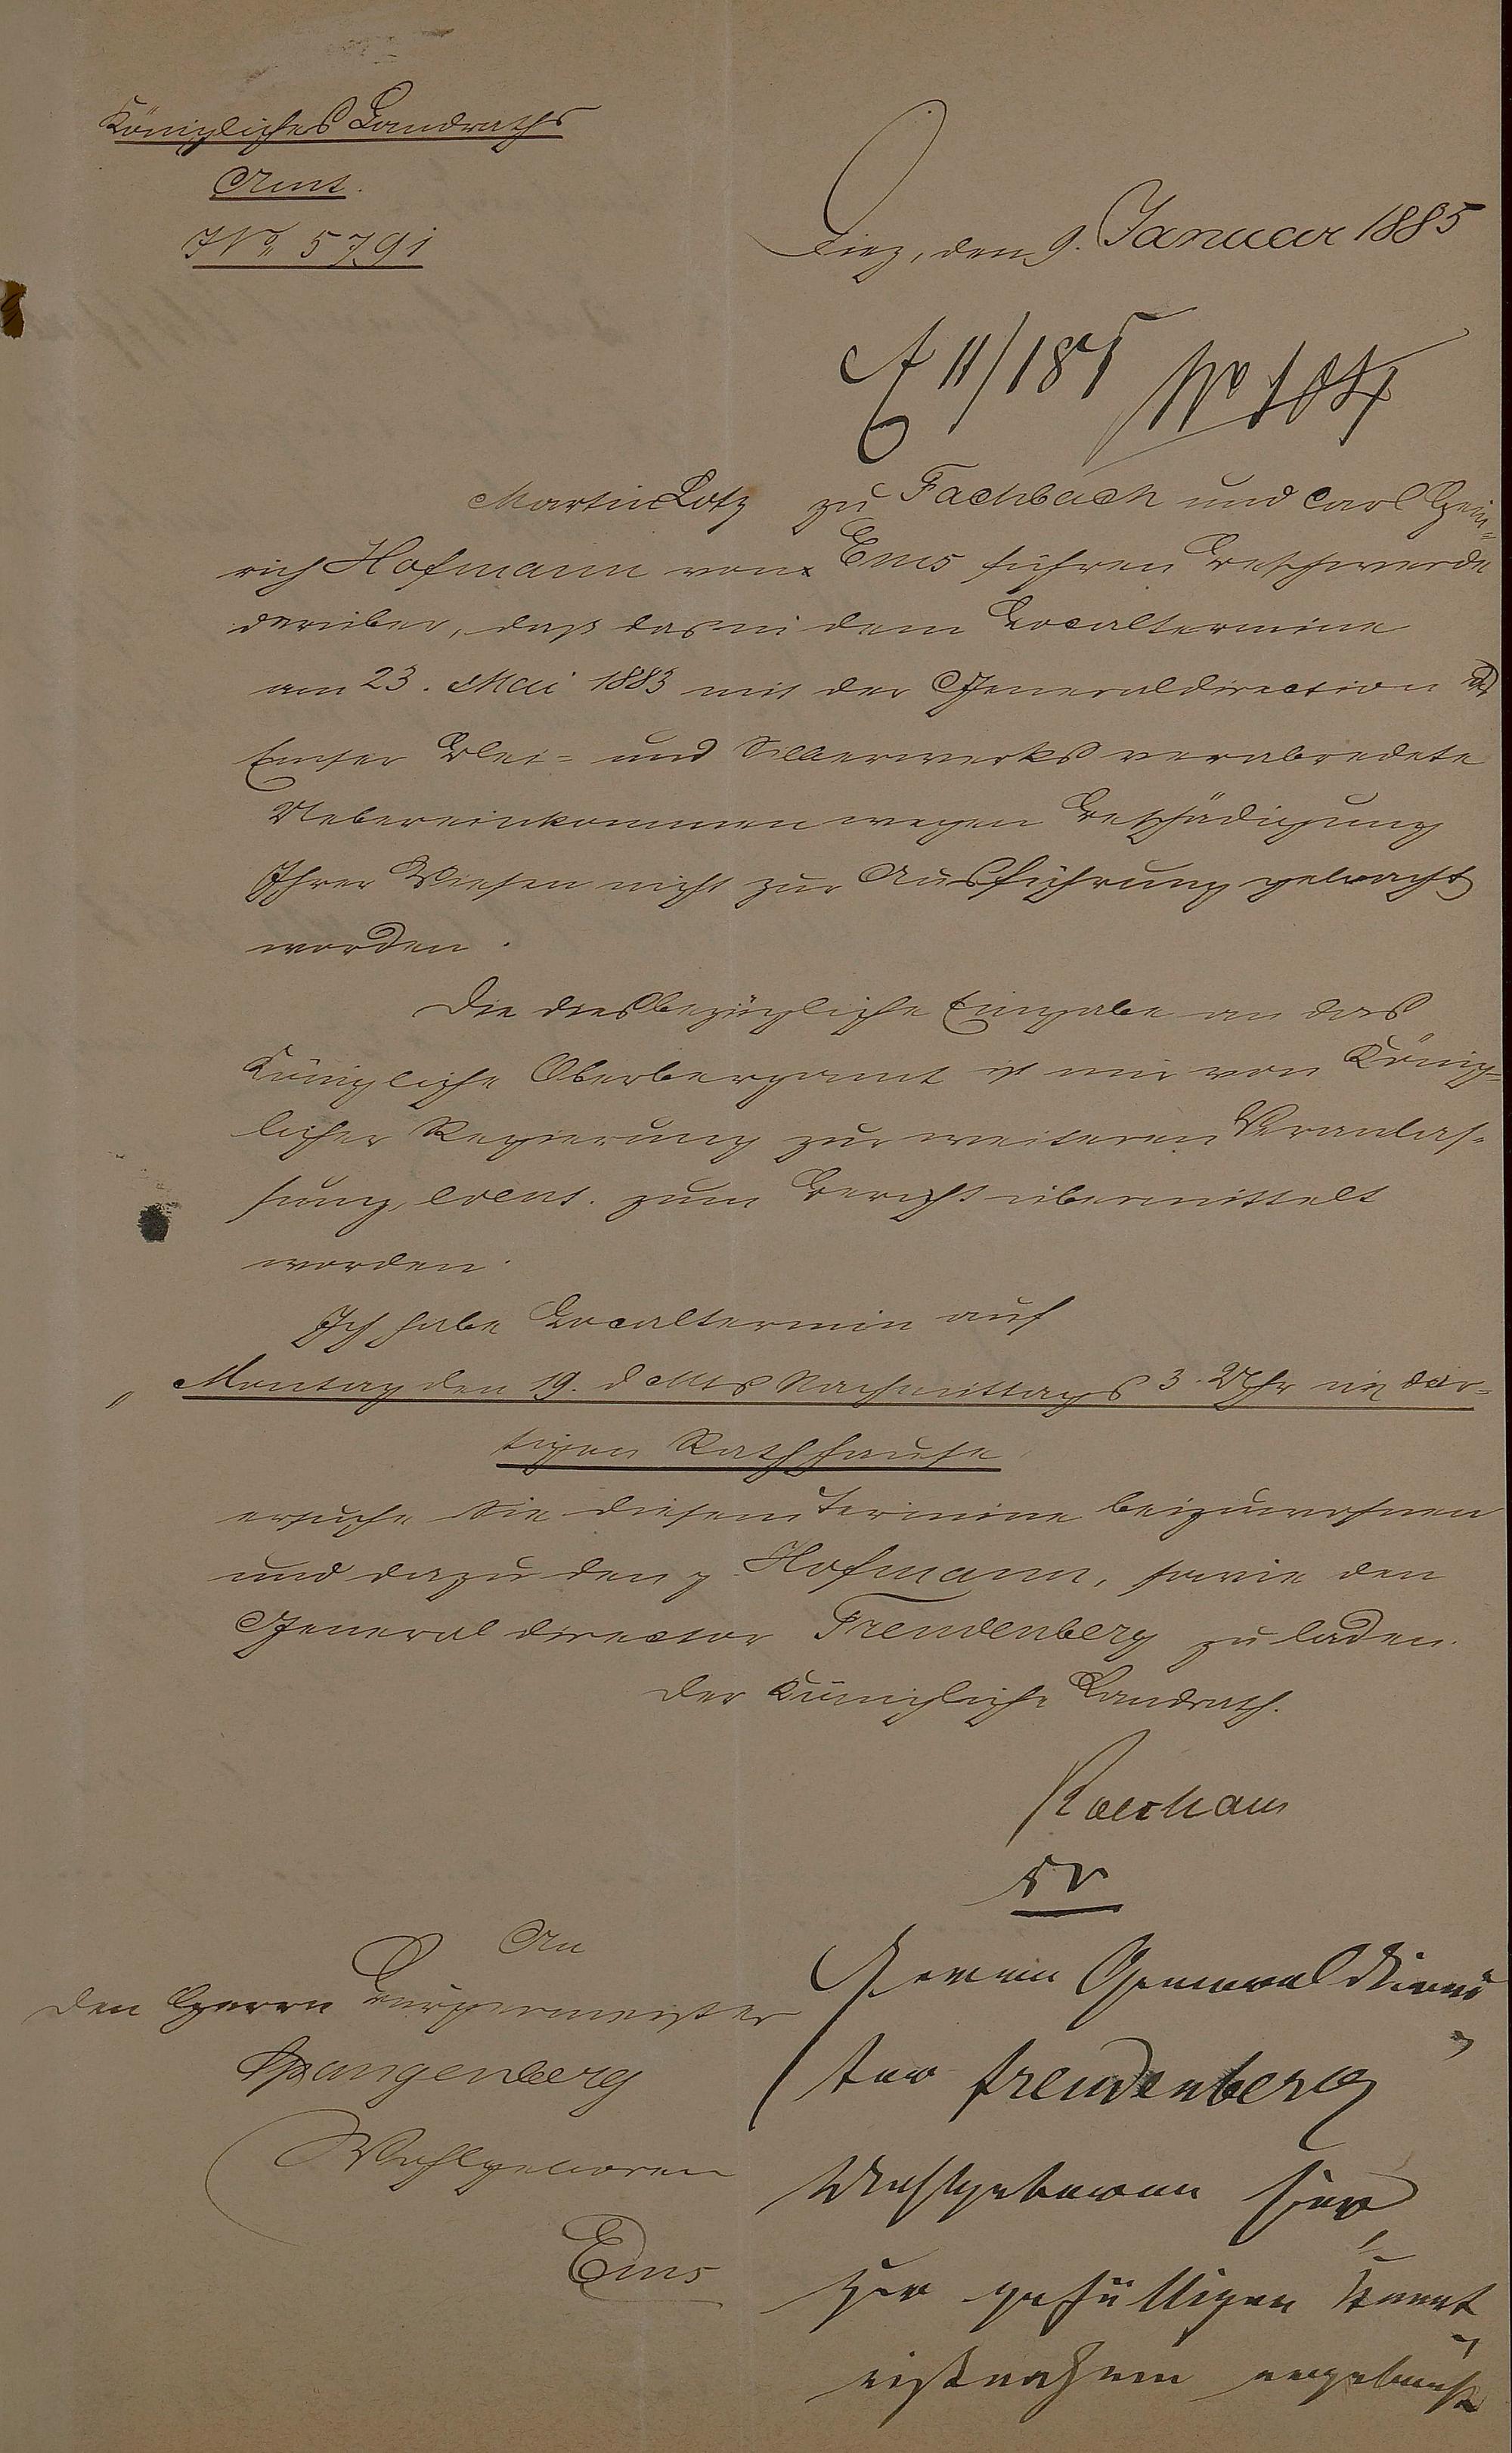 Königliches Landraths
Amt.
J No. 5791
Diez, den 9. Januar 1885
11/1 85 No 104
Martin Lotz zu Fachbach und Carl Hein=
rich Hofmann von Ems führen Beschwerde
darüber, daß das in dem Localtermine
am 23. Mai 1883 mit der Generaldirection des
Emser Blei= und Silberwerks verabredete
Uebereinkommen wegen Beschädigung
Ihrer Wiesen nicht zur Ausführung gebracht
worden.
Die diesbezügliche Eingabe an das
Königliche Oberbergamt ist mir von König=
licher Regierung zur weiteren Veranlas=
sung, event. zum Bericht übermittelt
worden.
Ich habe Localtermin auf
„Montag den 19. d Mts Nachmittags 3 Uhr im dor=
tigen Rathhause
ersuche Sie diesem Termine beizuwohnen
und dazu den p Hofmann, sowie den
Generaldirector Freudenberg zu laden.
Der Königliche Landrath.
An
den Herrn Bürgermeister
Spangenberg
Wohlgeboren
Ems
Herrn Generaldirec
tor Freudenberg
Wohlgeboren hier
zur gefälligen Kennt
nißnahme ergebenst